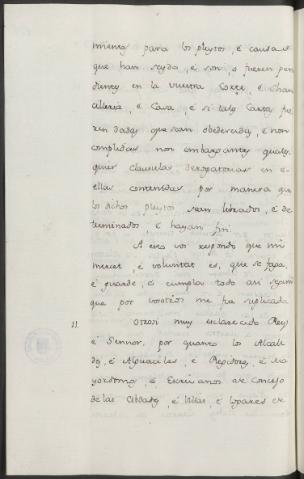 miento para los pleytos, é causas
que han seydo, é son, o fueren pen
dientes en la vuestra Corte, é Chan
cilleria, é Casa, é si tales Cartas fue
ren dadas que sean obedecidas, é non
complidas non embargantes quales
quier clausulas derogatorias en e-
ellas contenidas, por manera que
los dichos pleytos sean librados, é de
terminados, é hayan fin.
A esto vos respondo que mi
merced, é voluntat es, que se faga,
é guarde, é cumpla todo asi segunt
que por vosotros me ha suplicado
11. Otrosi muy esclarecido Rey
é Sennor, por quanto los Alcall
des, é Alguaciles, é Regidores, é Ma
yordomos, é Escrivanos de Concejo
de las Cibdades, é Villas, é Logares de